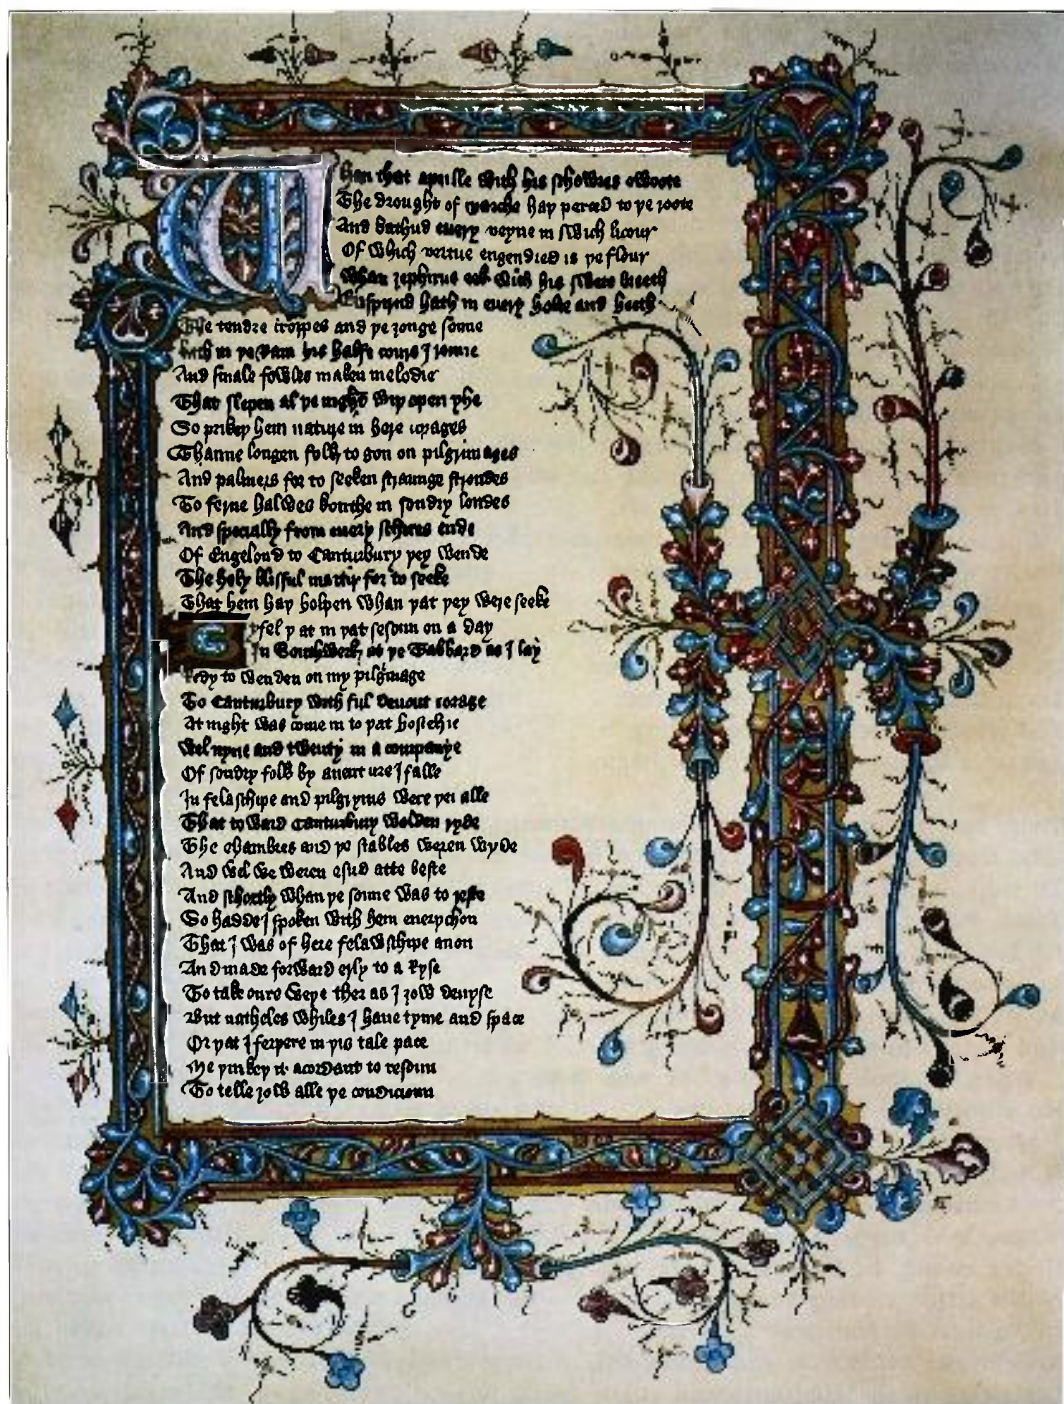 Whan that aprille with his schowres swoote
The drought of marche haþ perced to þe roote
And bathud euery veyne in swich licour
Of which vertue engendred is þe flour
Whan zephirus eek with his swete breeth
Enspirud hath in euery holte and heeth
The tendre croppes and þe ȝonge sonne
hath in þe Ram his halfe cours I ronne
And smale fowles maken melodie
That slepen al þe night wiþ open yhe
So prikeþ hem nature in here corages
Thanne longen folk to gon on pilgrimages
And palmers for to seeken straunge strondes
To ferne halwes kouthe in sondry londes
And specially from euery schires ende
Of Engelond to Canturbury þey wende
The holy blisful martir for to seeke
That hem haþ holpen whan þat þey were seeke
fel þat in þat sesoun on a day
In Southwerk at þe Tabbard as I lay
Redy to wenden on my pilgrimage
To Canturbury with ful deuout corage
At night was come in to þat hostelrie
Wel nyne and twenty in a companye
Of sondry folk by auenture I falle
In felaschipe and pilgryms were þei alle
That toward Canturbury wolden ryde
The chambres and þe stables weren wyde
And wel we weren esud atte beste
And schortly whan þe sonne was to reste
So hadde I spoken with hem euerychon
That I was of here felawschipe anon
And made forward erly to a ryse
To take oure weye ther as I ȝow deuyse
But natheles whiles I haue tyme and space
Or þat I ferþere in þis tale pace
Me þinkeþ it acordant to resoun
To telle ȝow alle þe condicioun